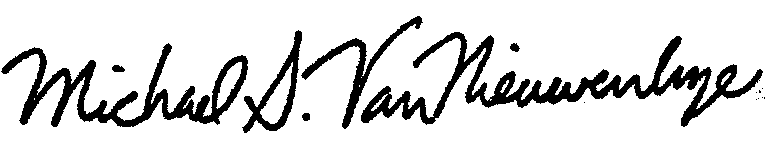 Michael S. VanNieuwenhuyze